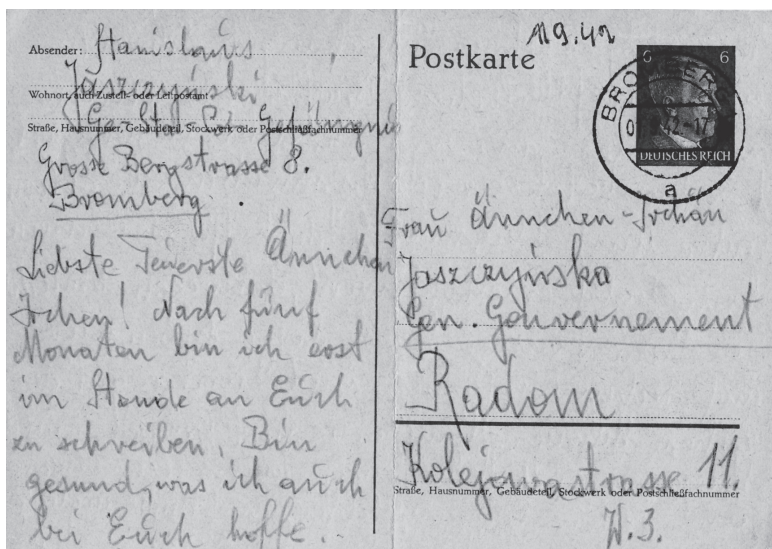 Absender: Stanislaus
Jaszczyński
Wohnort, auch Zustell- oder Leitpostamt
Gefängnis
Straße, Hausnummer, Gebäudeteil, Stockwerk oder Postschließfachnummer
Grosse Bergstrasse 8.
Bromberg.
Liebste Teuerste Ännchen
Irchen! Nach fünf
Monaten bin ich erst
im Stande an Euch
zu schreiben. Bin
gesund, was ich auch
bei Euch hoffe.
Postkarte
6 6
BROMBERG
DEUTSCHES REICH
a
Frau Ännchen-Irchen
Jaszczyńska
Gen. Gouvernement
Radom
Kolejowastrasse 11.
Straße, Hausnummer, Gebäudeteil, Stockwerk oder Postschließfachnummer
W.3.